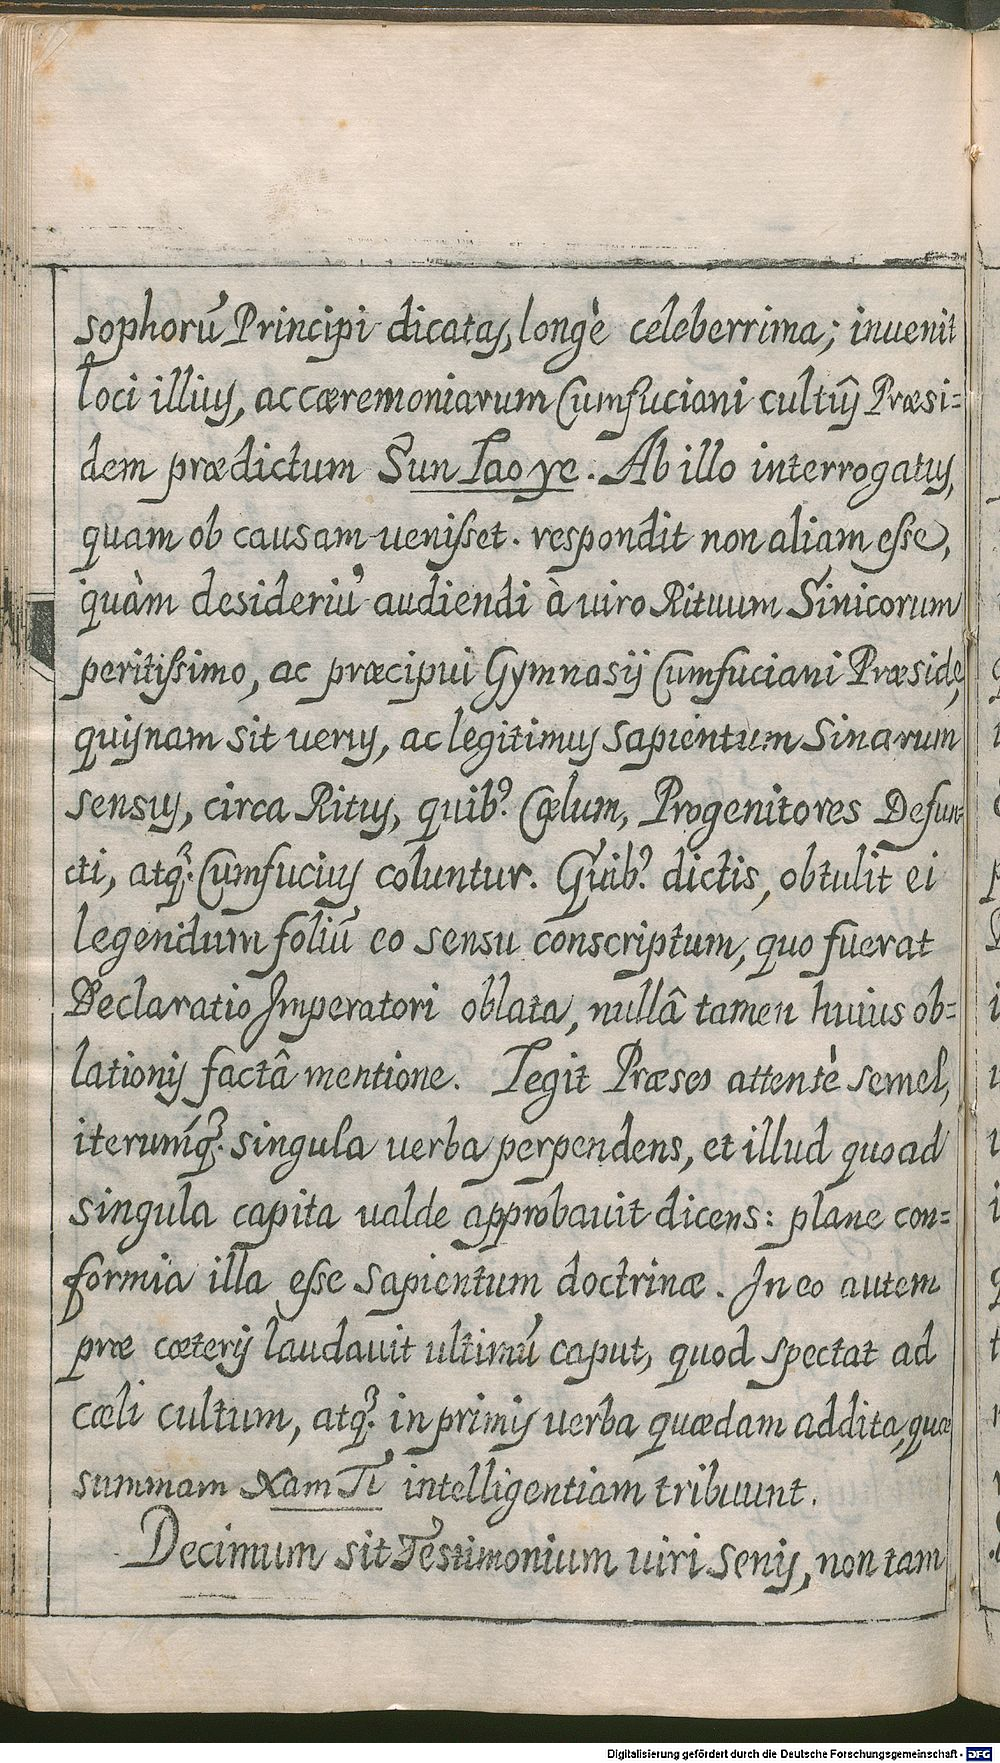 sophorū Principi dicatas, longè celeberrima; inuenit
loci illius, ac cæremoniarum Cumfuciani cultûs Præsi=
dem prædictum Sun Lao ye. Ab illo interrogatus,
quam ob causam uenisset. respondit non aliam esse,
quàm desideriū audiendi à uiro Rituum Sinicorum
peritissimo, ac præcipui Gymnasij Cumfuciani Præside,
quisnam sit uerus, ac legitimus Sapientum Sinarum
sensus, circa Ritus, quib⁹ Cœlum, Progenitores Defun=
cti, atq₃ Cumfucius coluntur. Quib⁹ dictis, obtulit ei
legendum foliū eo sensu conscriptum, quo fuerat
Declaratio Imperatori oblata, nullâ tamen huius ob=
lationis factâ mentione. Legit Præses attentè semel,
iterumq₃ singula uerba perpendens, et illud quoad
singula capita ualde approbauit dicens: plane con=
formia illa esse Sapientum doctrinæ. In eo autem
præ cœteris laudauit ultimū caput, quod spectat ad
cœli cultum, atq₃ in primis uerba quædam addita, quæ
summam Xam Ti intelligentiam tribuunt.
Decimum sit Testimonium uiri Senis, non tam
Digitalisierung gefördert durch die Deutsche Forschungsgemeinschaft - DFG